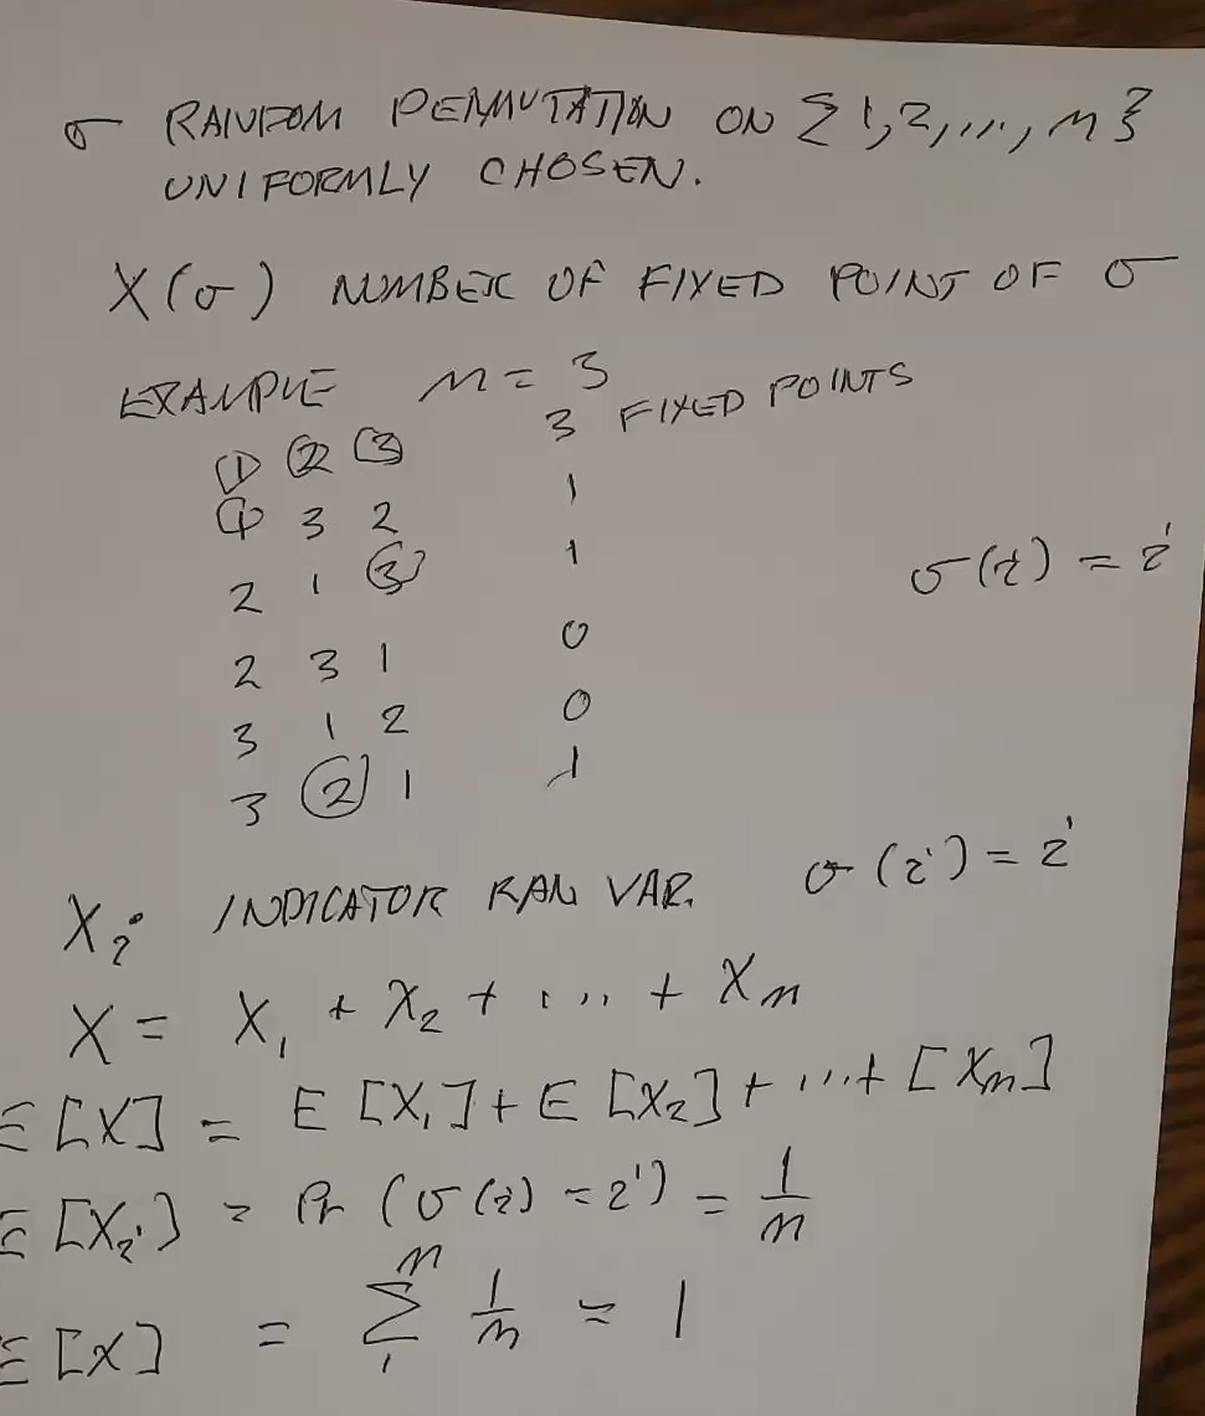 σ RANDOM PERMUTATION ON {1,2,...,n}
UNIFORMLY CHOSEN.
X(σ) NUMBER OF FIXED POINT OF σ
EXAMPLE n = 3
3 FIXED POINTS
1 2 3
1 3 2 1
2 1 3 1
σ(i) = i
2 3 1 0
3 1 2 0
3 2 1 1
Xi INDICATOR RAN VAR. σ(i) = i
X = X₁ + X₂ + ... + Xn
E[X] = E[X₁] + E[X₂] + ... + [Xn]
E[Xi] = Pr(σ(i) = i) = 1/n
E[X] = Σ₁ⁿ 1/n = 1